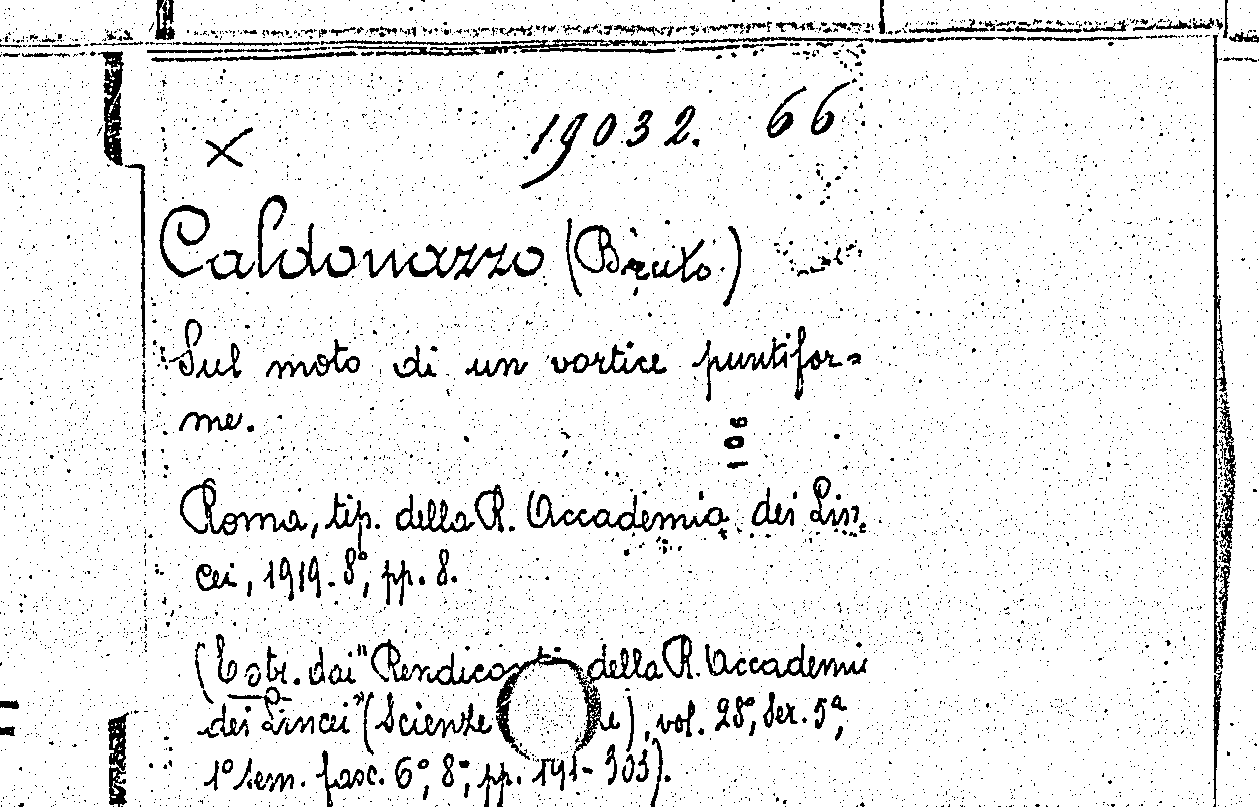 19032. 66
Caldonazzo (Bruto.)
Sul moto di un vortice puntifor=
me.
106
Roma, tip. della R. Accademia dei Lin,
cei, 1919. 8°, pp. 8.
(Estr. dai "Rendiconti della R. Accademia
dei Lincei" (Scienze), vol. 28°, Ser. 5ª,
1° sem. fasc. 6°, 8°, pp. 191-303).